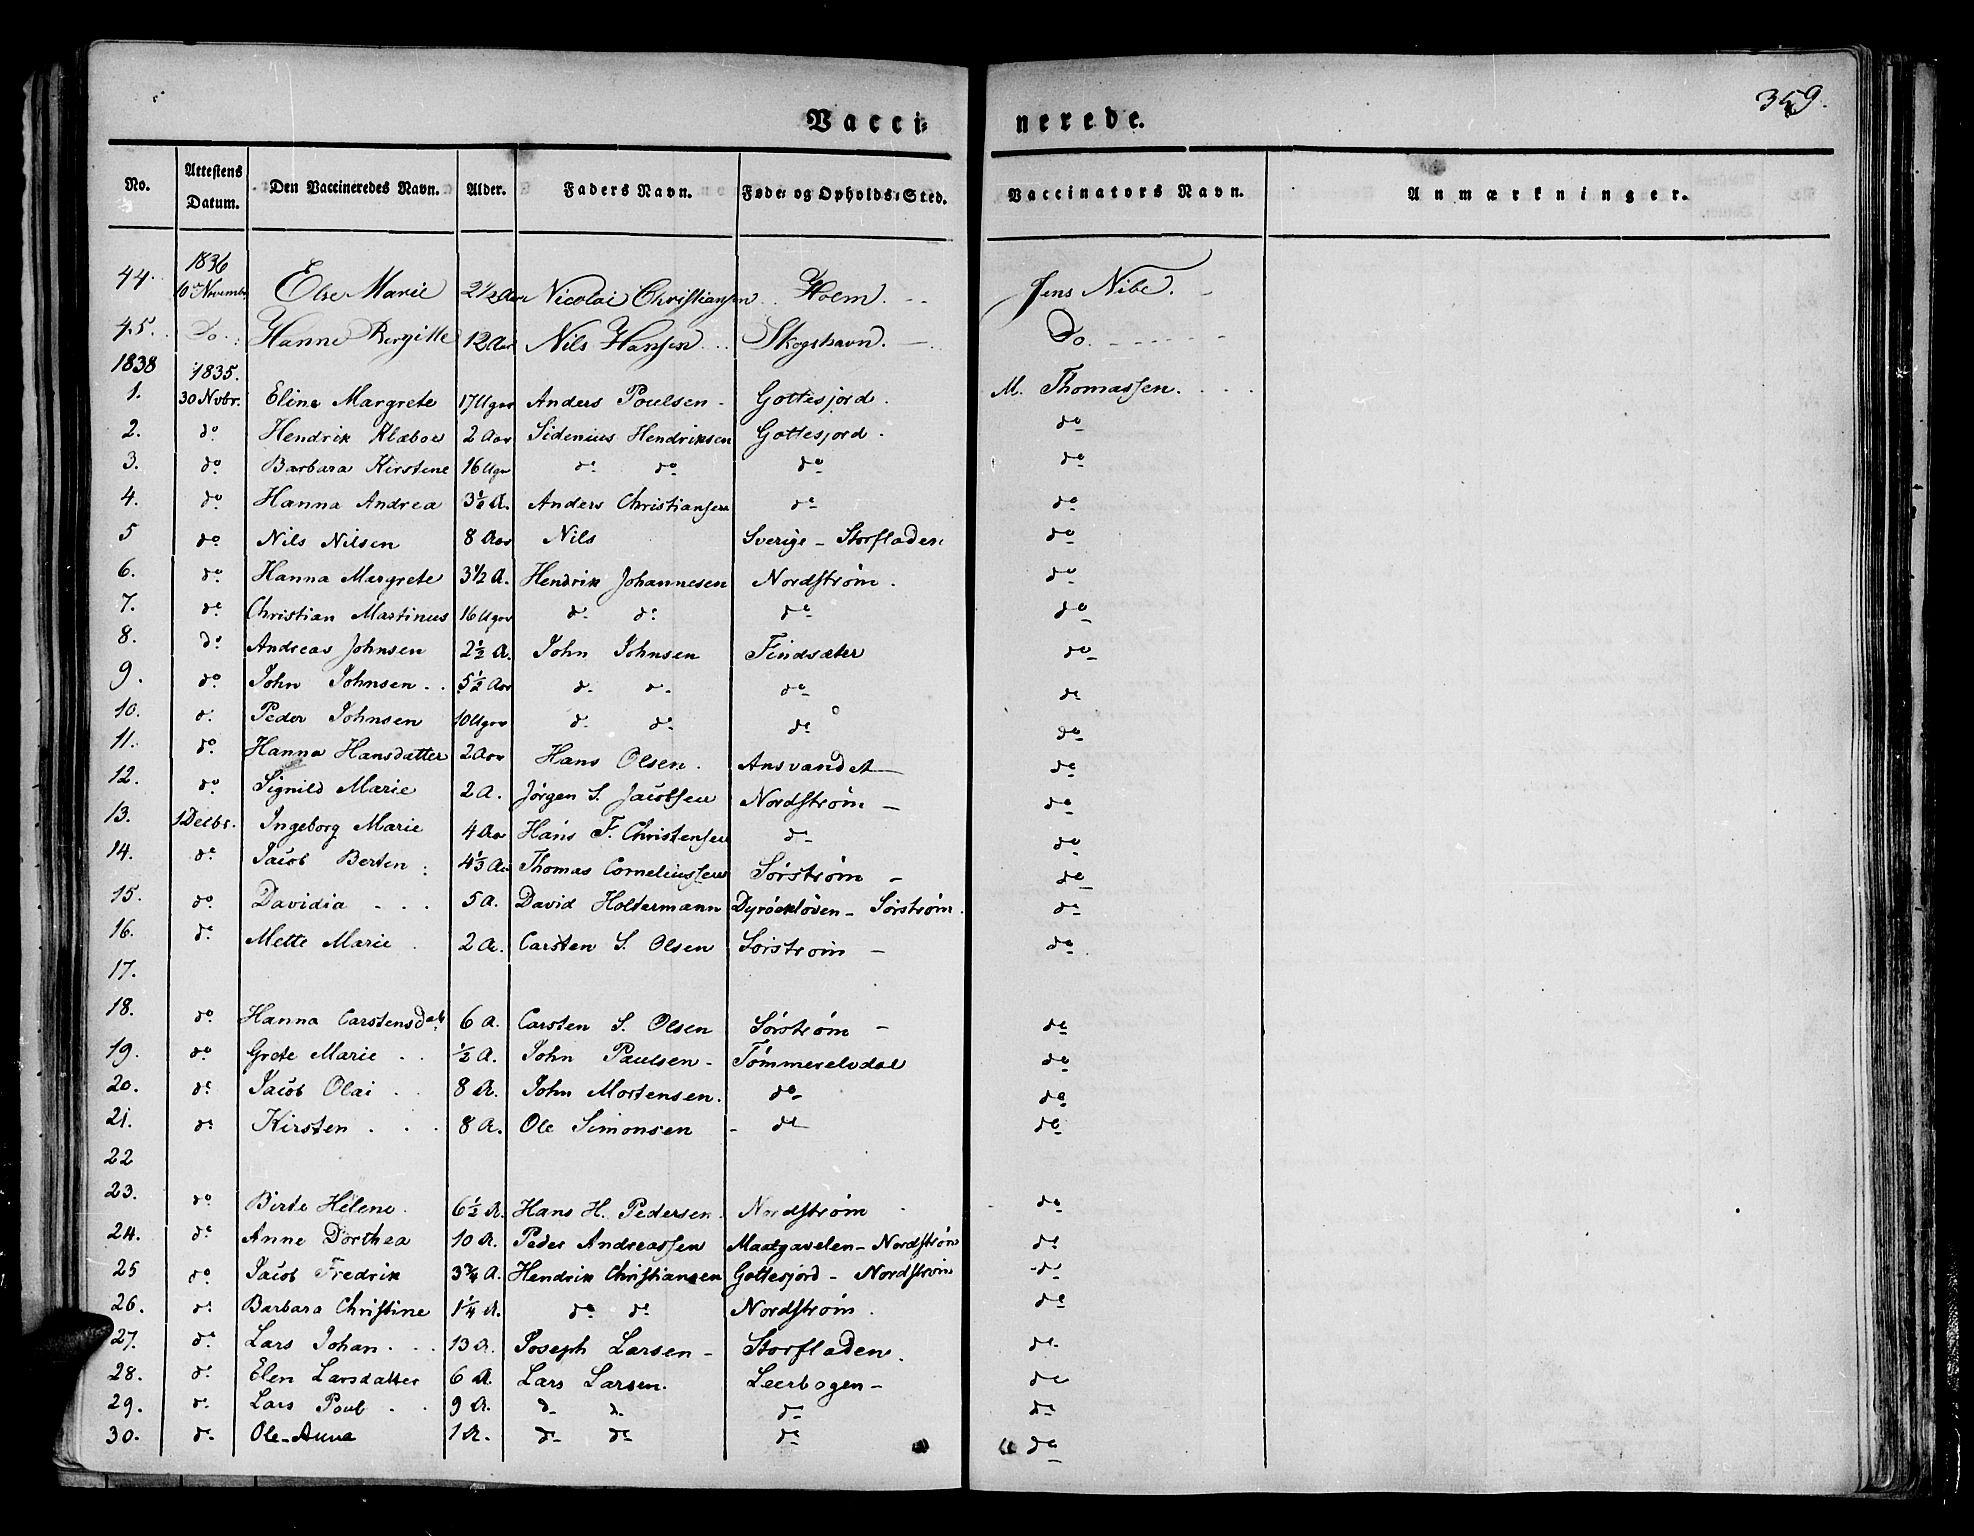 359.
Vacci= nerede.
No. Attestens Datum. Den Vaccineredes Navn. Alder. Faders Navn. Føde= og Opholds=Sted. Vaccinators Navn. Anmærkninger.
1836
44. 10de Novembr Else Marie 2 1/2 Aar Nicolai Christiansen Holm. Jens Nibe.
45. Do. Hanne Bergitte 12 Aar Nils Hansen Skogshavn. Do.
1838 1835.
1. 30 Nvbr. Eline Margrete 17 Uger Anders Poulsen - Gottesjord. M. Thomassen.
2. do Hendrik Klæboe 2 Aar Sidenius Hendriksen Gottesjord. do
3. do Barbara Kirstine 16 Uger do do do do
4. do Hanna Andrea 3 1/2 A. Anders Christiansen do do
5 do Nils Nilsen 8 Aar Nils Sverige - Storfladen do
6. do Hanna Margrete 3 1/2 A. Hendrik Johannesen Nordstrøm. do
7. do Christian Martinus 16 Uger do do do do
8. do Andreas Johnsen 2 1/2 A. John Johnsen Findsæter do
9. do John Johnsen 5 1/2 Aar do do do do
10. do Peder Johnsen 10 Uger do do do do
11. do Hanna Hansdatter 2 Aar Hans Olsen. Ansvandet do
12. do Signild Marie 2 A. Jørgen S. Jacobsen Nordstrøm - do
13. 1 Decbr. Ingeborg Marie 4 Aar Hans F. Christensen do do
14. do Jacob Berten 4 1/3 Aar Thomas Corneliussen Sørstrøm - do
15. do Davidia 5 A. David Holtermann Sørstrøm. do
16. do Mette Marie 2 A. Carsten S. Olsen Sørstrøm - do
17.
18. do Hanna Carstensdatt. 6 A. Carsten S. Olsen Sørstrøm - do
19. do Grete Marie 1/2 A. John Paulsen - Tømmerelvdal do
20. do Jacob Olai 8 A. John Mortensen. do do
21. do Kirsten 8 A. Ole Simonsen - do do
22
23. do Birte Helene 6 1/2 A. Hans H. Pedersen. Nordstrøm do
24. do Anne Dorthea 10 A. Peder Andreassen Maatgavelen - Nordstrøm do
25 do Jacob Fredrik 3 3/4 A. Hendrik Christiansen Gottesjord - Nordstrøm do
26. do Barbara Christine 1 1/4 A. do do Nordstrøm. do
27. do Lars Johan 13 A. Joseph Larsen - Storfladen. do
28. do Elen Larsdatter 6 A. Lars Larsen. Leerbogen - do
29. do Lars Poul 9 A. do do do do
30. do Ole-Anna 1 A. do do do do